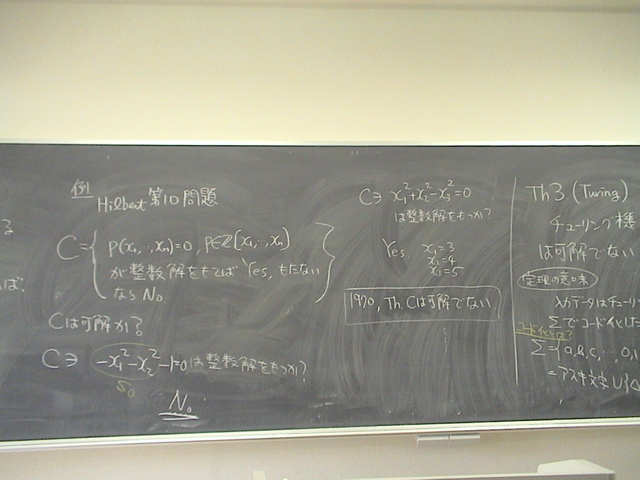 例 Hilbert 第10問題
C = { P(x₁, ‥, xₙ)=0, P∈ℤ[x₁, ‥, xₙ]
が整数解をもてば Yes, もたない
ならNo. }
Cは可解か?
C∋ -x₁²-x₂²-1=0 は整数解をもつか?
No
C∋ x₁²+x₂²-x₃²=0
は整数解をもつか?
Yes. x₁=3
x₂=4
x₃=5
1970, Th. Cは可解でない
Th 3 (Turing)
チューリング機
は可解でない
定理の意味
入力データはチューリ
Σでコード化し
コード化とは?
Σ={a, b, c, ‥, 0, 1
=アスキ文字